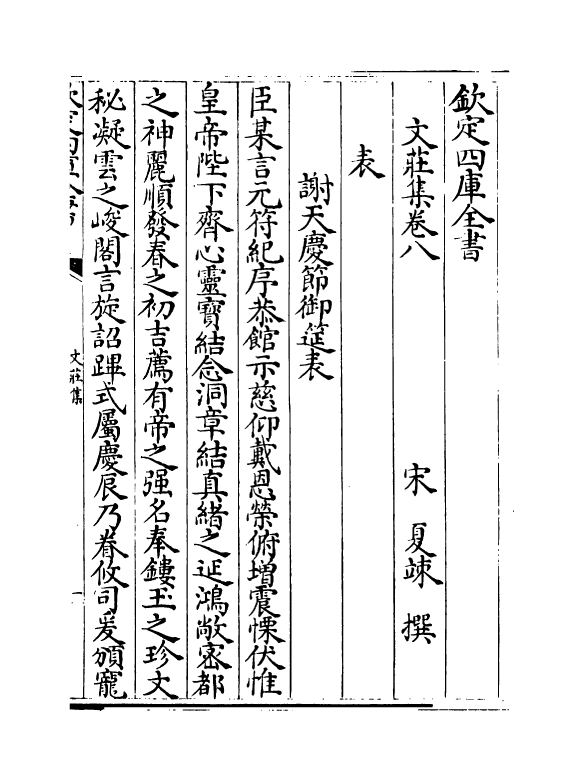 欽定四庫全書
文莊集卷八
宋 夏竦 撰
表
謝天慶節御筵表
臣某言元符紀序恭館示慈仰戴恩榮俯增震慄伏惟
皇帝陛下齊心靈寶結念洞章結真緒之延鴻敞宻都
之神麗順發春之初吉薦有帝之强名奉鏤玉之珍文
秘凝雲之峻閣言旋詔蹕式屬慶辰乃眷攸司爰頒寵
欽定四庫全書
文莊集
一